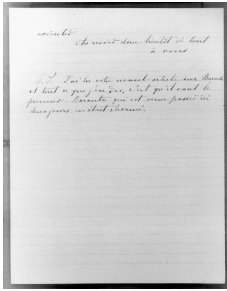 Au revoir donc bientôt et tout
à vous
P.S. J'ai lu votre nouvel article sur
et tout ce que j'en dis, c'est qu'il vaut le
premier. qui est venu passer ici
deux jours, en était charmé.